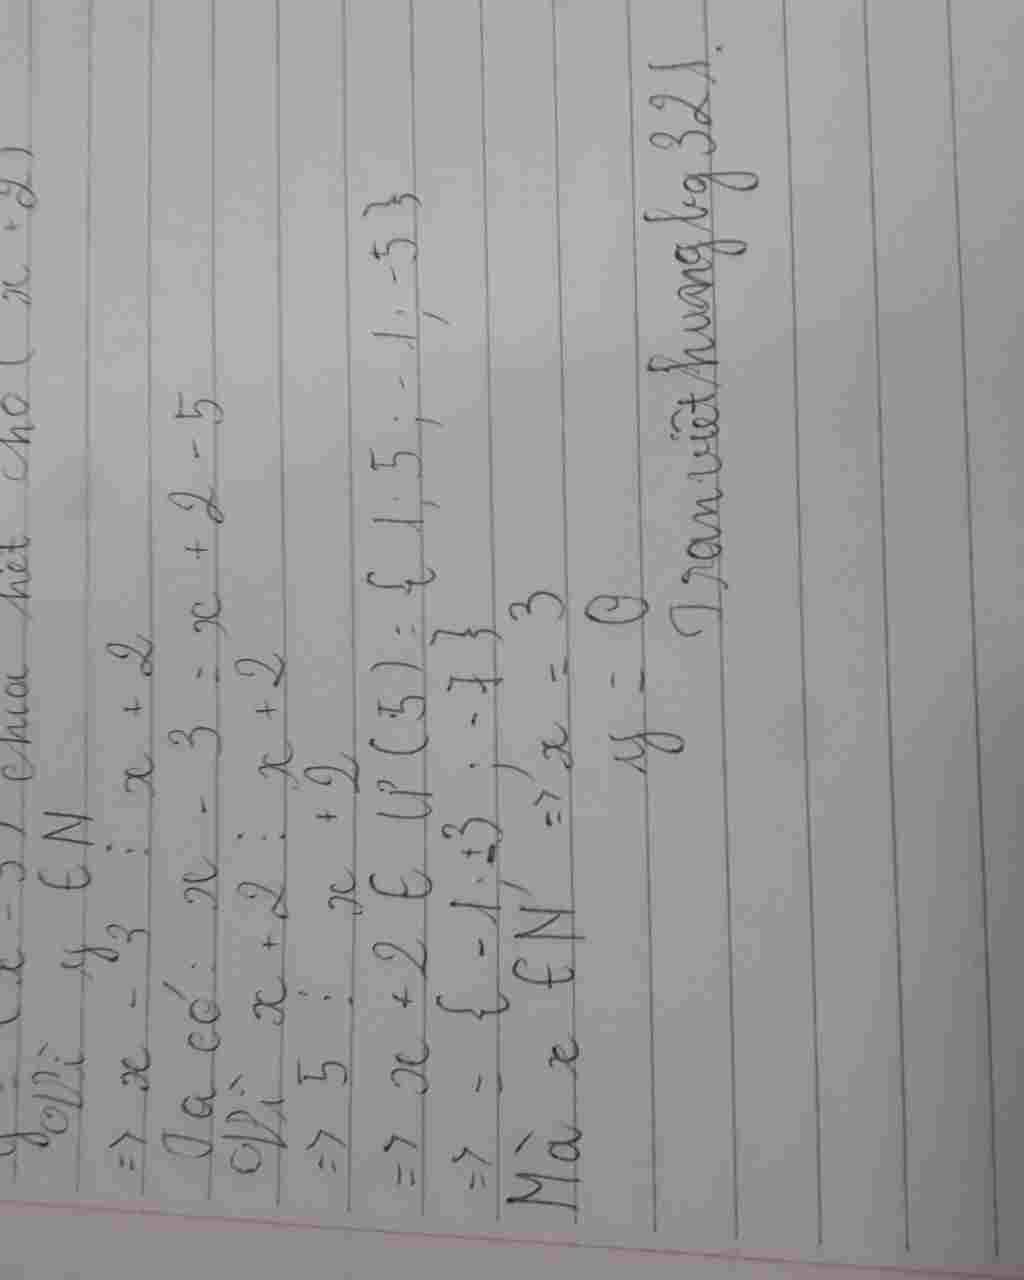 y = (x - 3) chia hết cho (x + 2)
Vì y ∈ N
=> x - 3 ⋮ x + 2
Ta có: x - 3 = x + 2 - 5
Vì x + 2 ⋮ x + 2
=> 5 ⋮ x + 2
=> x + 2 ∈ Ư(5) = { 1; 5; -1; -5}
=> = { -1; +3; -7}
Mà x ∈ N => x = 3
y = 0
Tranviethuangbg321.